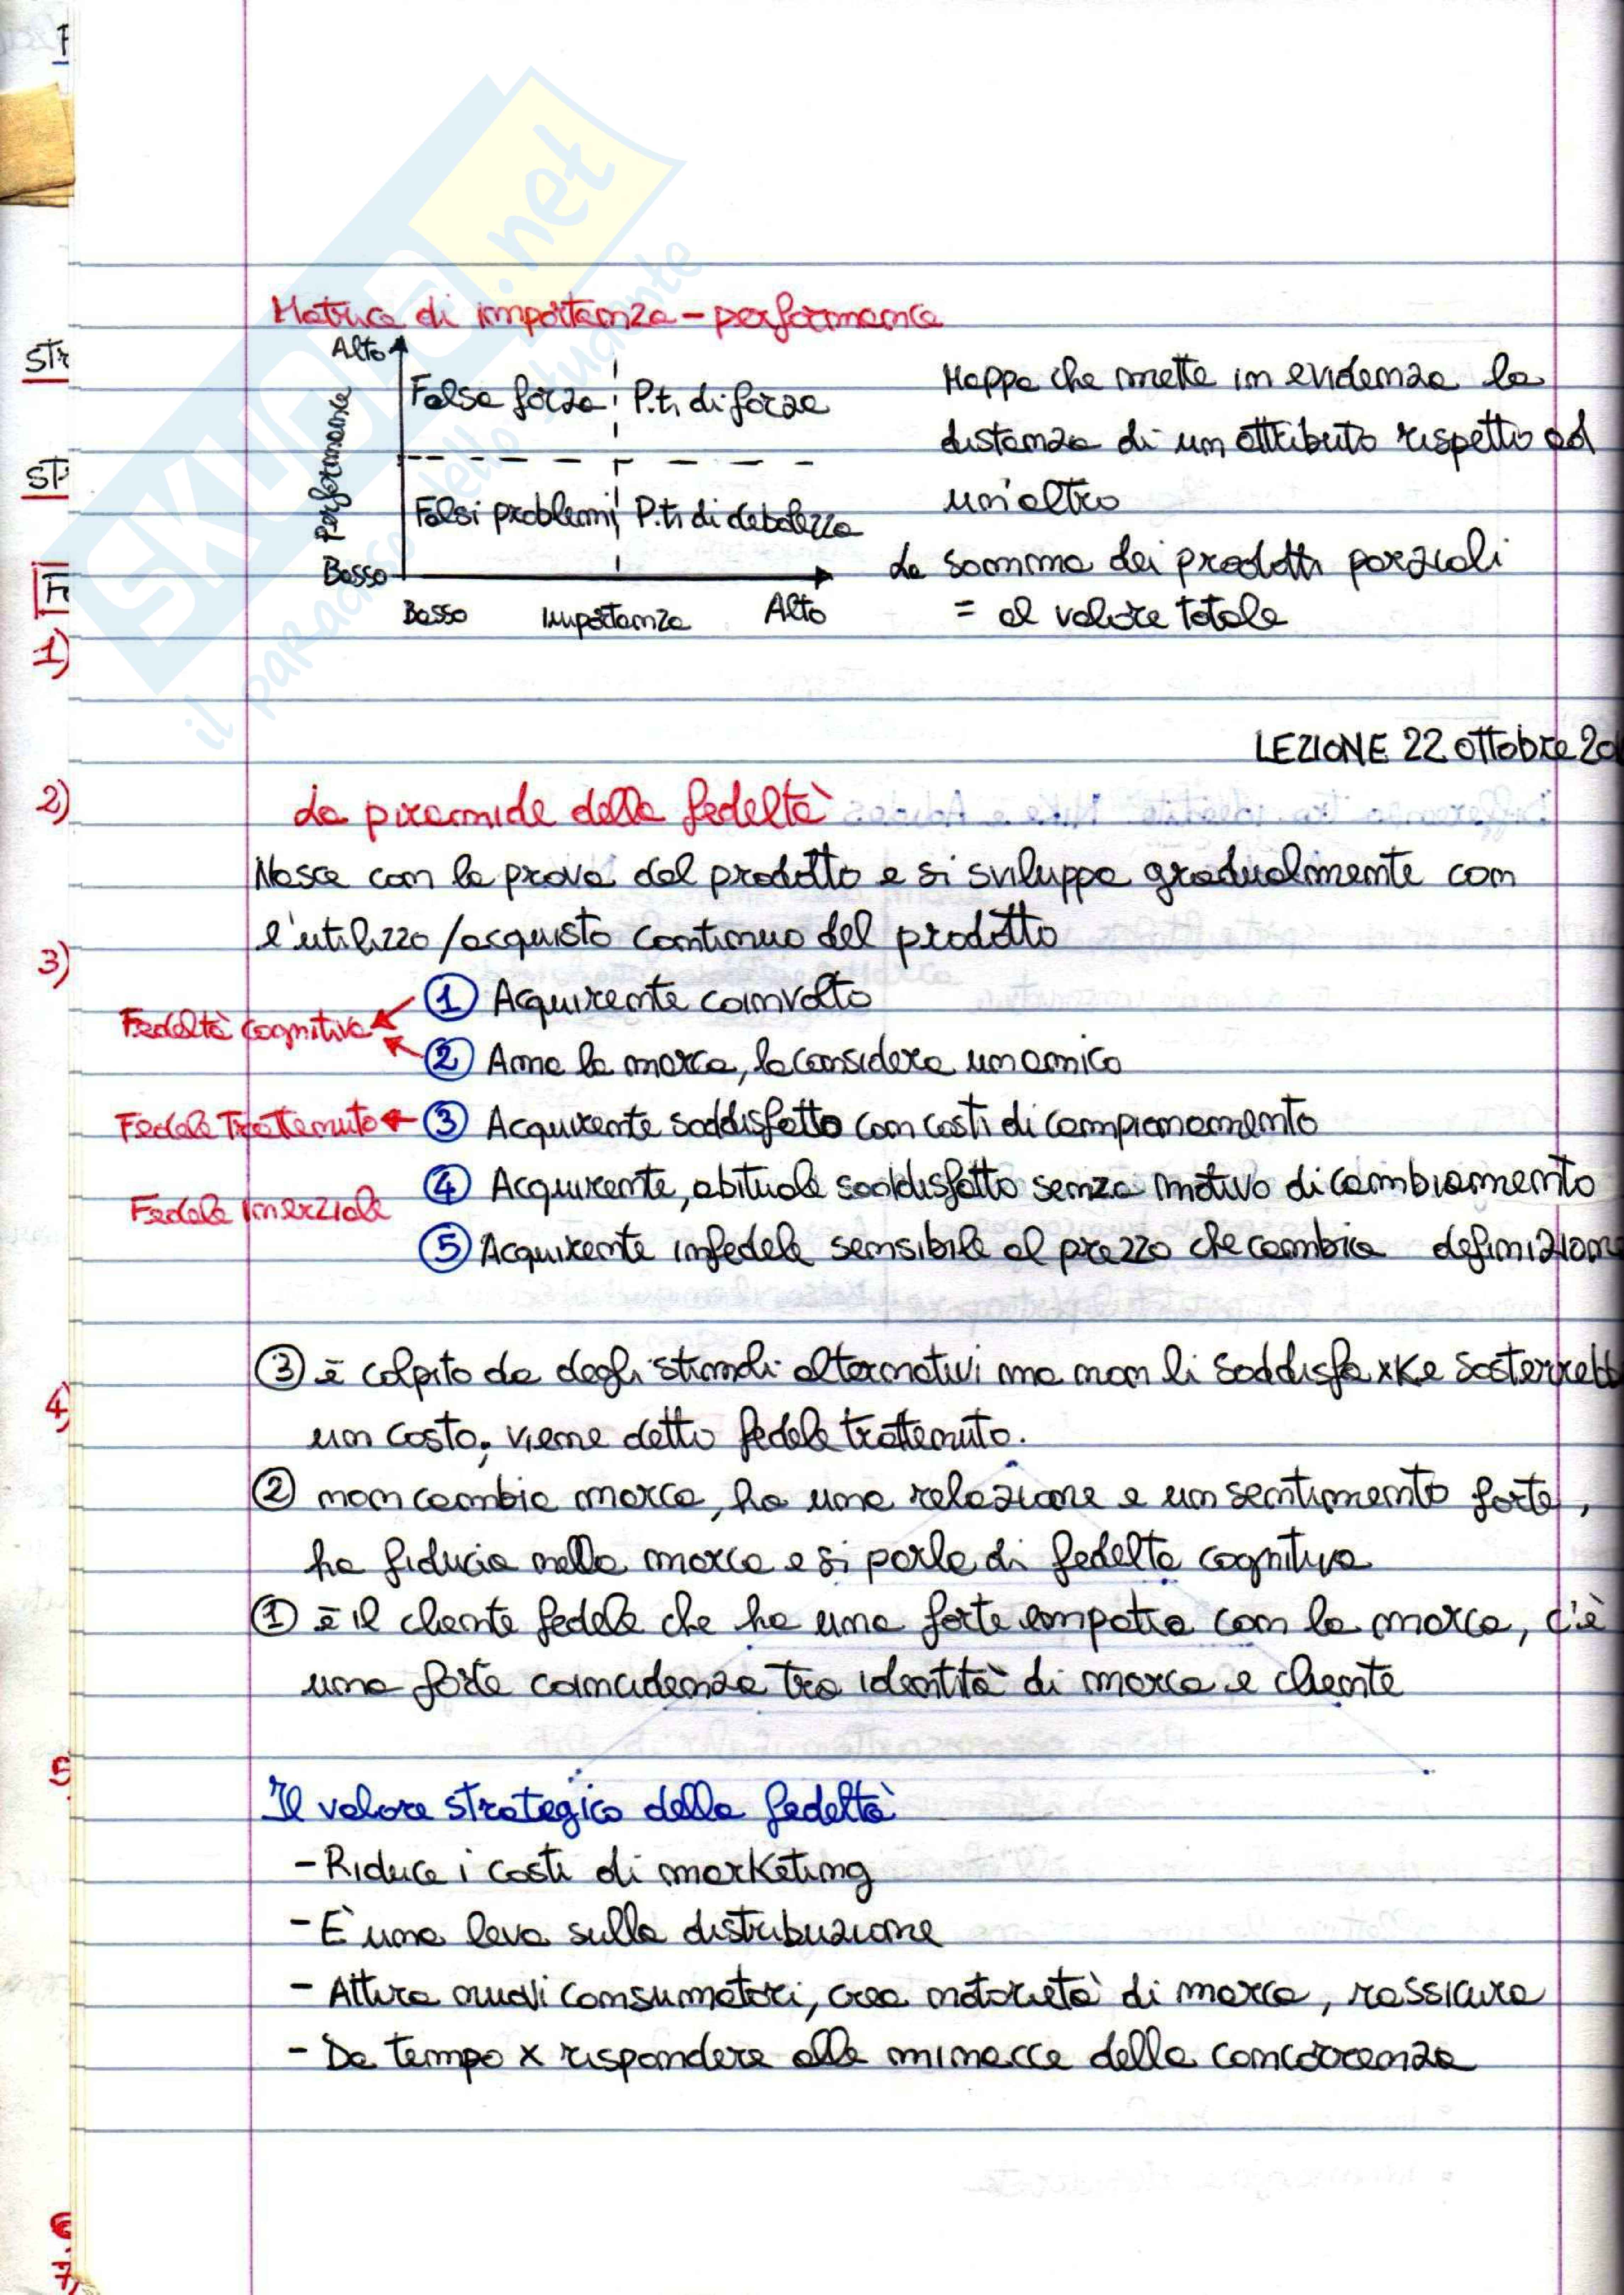 SKUOLA.net
il paradiso dello studente
Matrice di importanza - performance
Alto
Performance
Falsa forza
P.ti di forza
Falsi problemi
P.ti di debolezza
Basso
Basso Importanza Alto
Mappa che mette in evidenza la
distanza di un attributo rispetto ad
un'altro
La somma dei prodotti parziali
= al valore totale
LEZIONE 22 ottobre 20
La piramide della fedeltà
Nasce con la prova del prodotto e si sviluppa gradualmente con
l'utilizzo/acquisto continuo del prodotto
Fedeltà cognitiva
① Acquirente coinvolto
② Ama la marca, la considera un amico
Fedele trattenuto ③ Acquirente soddisfatto con costi di campianamento
Fedele inerziale ④ Acquirente, abituale soddisfatto senza motivo di cambiamento
⑤ Acquirente infedele sensibile al prezzo che cambia definizione
③ è colpito da degli stimoli alternativi ma non li soddisfa xké sosterrebb
un costo, viene detto fedele trattenuto.
② non cambia marca, ha una relazione e un sentimento forte,
ha fiducia nella marca e si parla di fedeltà cognitiva
① è il cliente fedele che ha una forte empatia con la marca, c'è
una forte coincidenza tra identità di marca e cliente
Il valore strategico della fedeltà
- Riduce i costi di marketing
- È una leva sulla distribuzione
- Attira nuovi consumatori, crea notorietà di marca, rassicura
- Da tempo x rispondere alle minacce della concorrenza
STr
1)
2)
3)
4)
5
7)